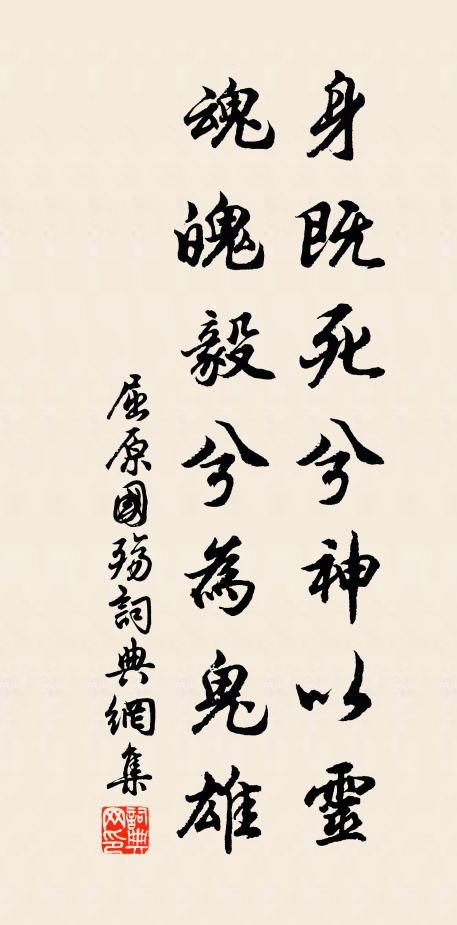 身既死兮神以靈
魂魄毅兮為鬼雄
屈原國殤詞典網集
詞典
网印